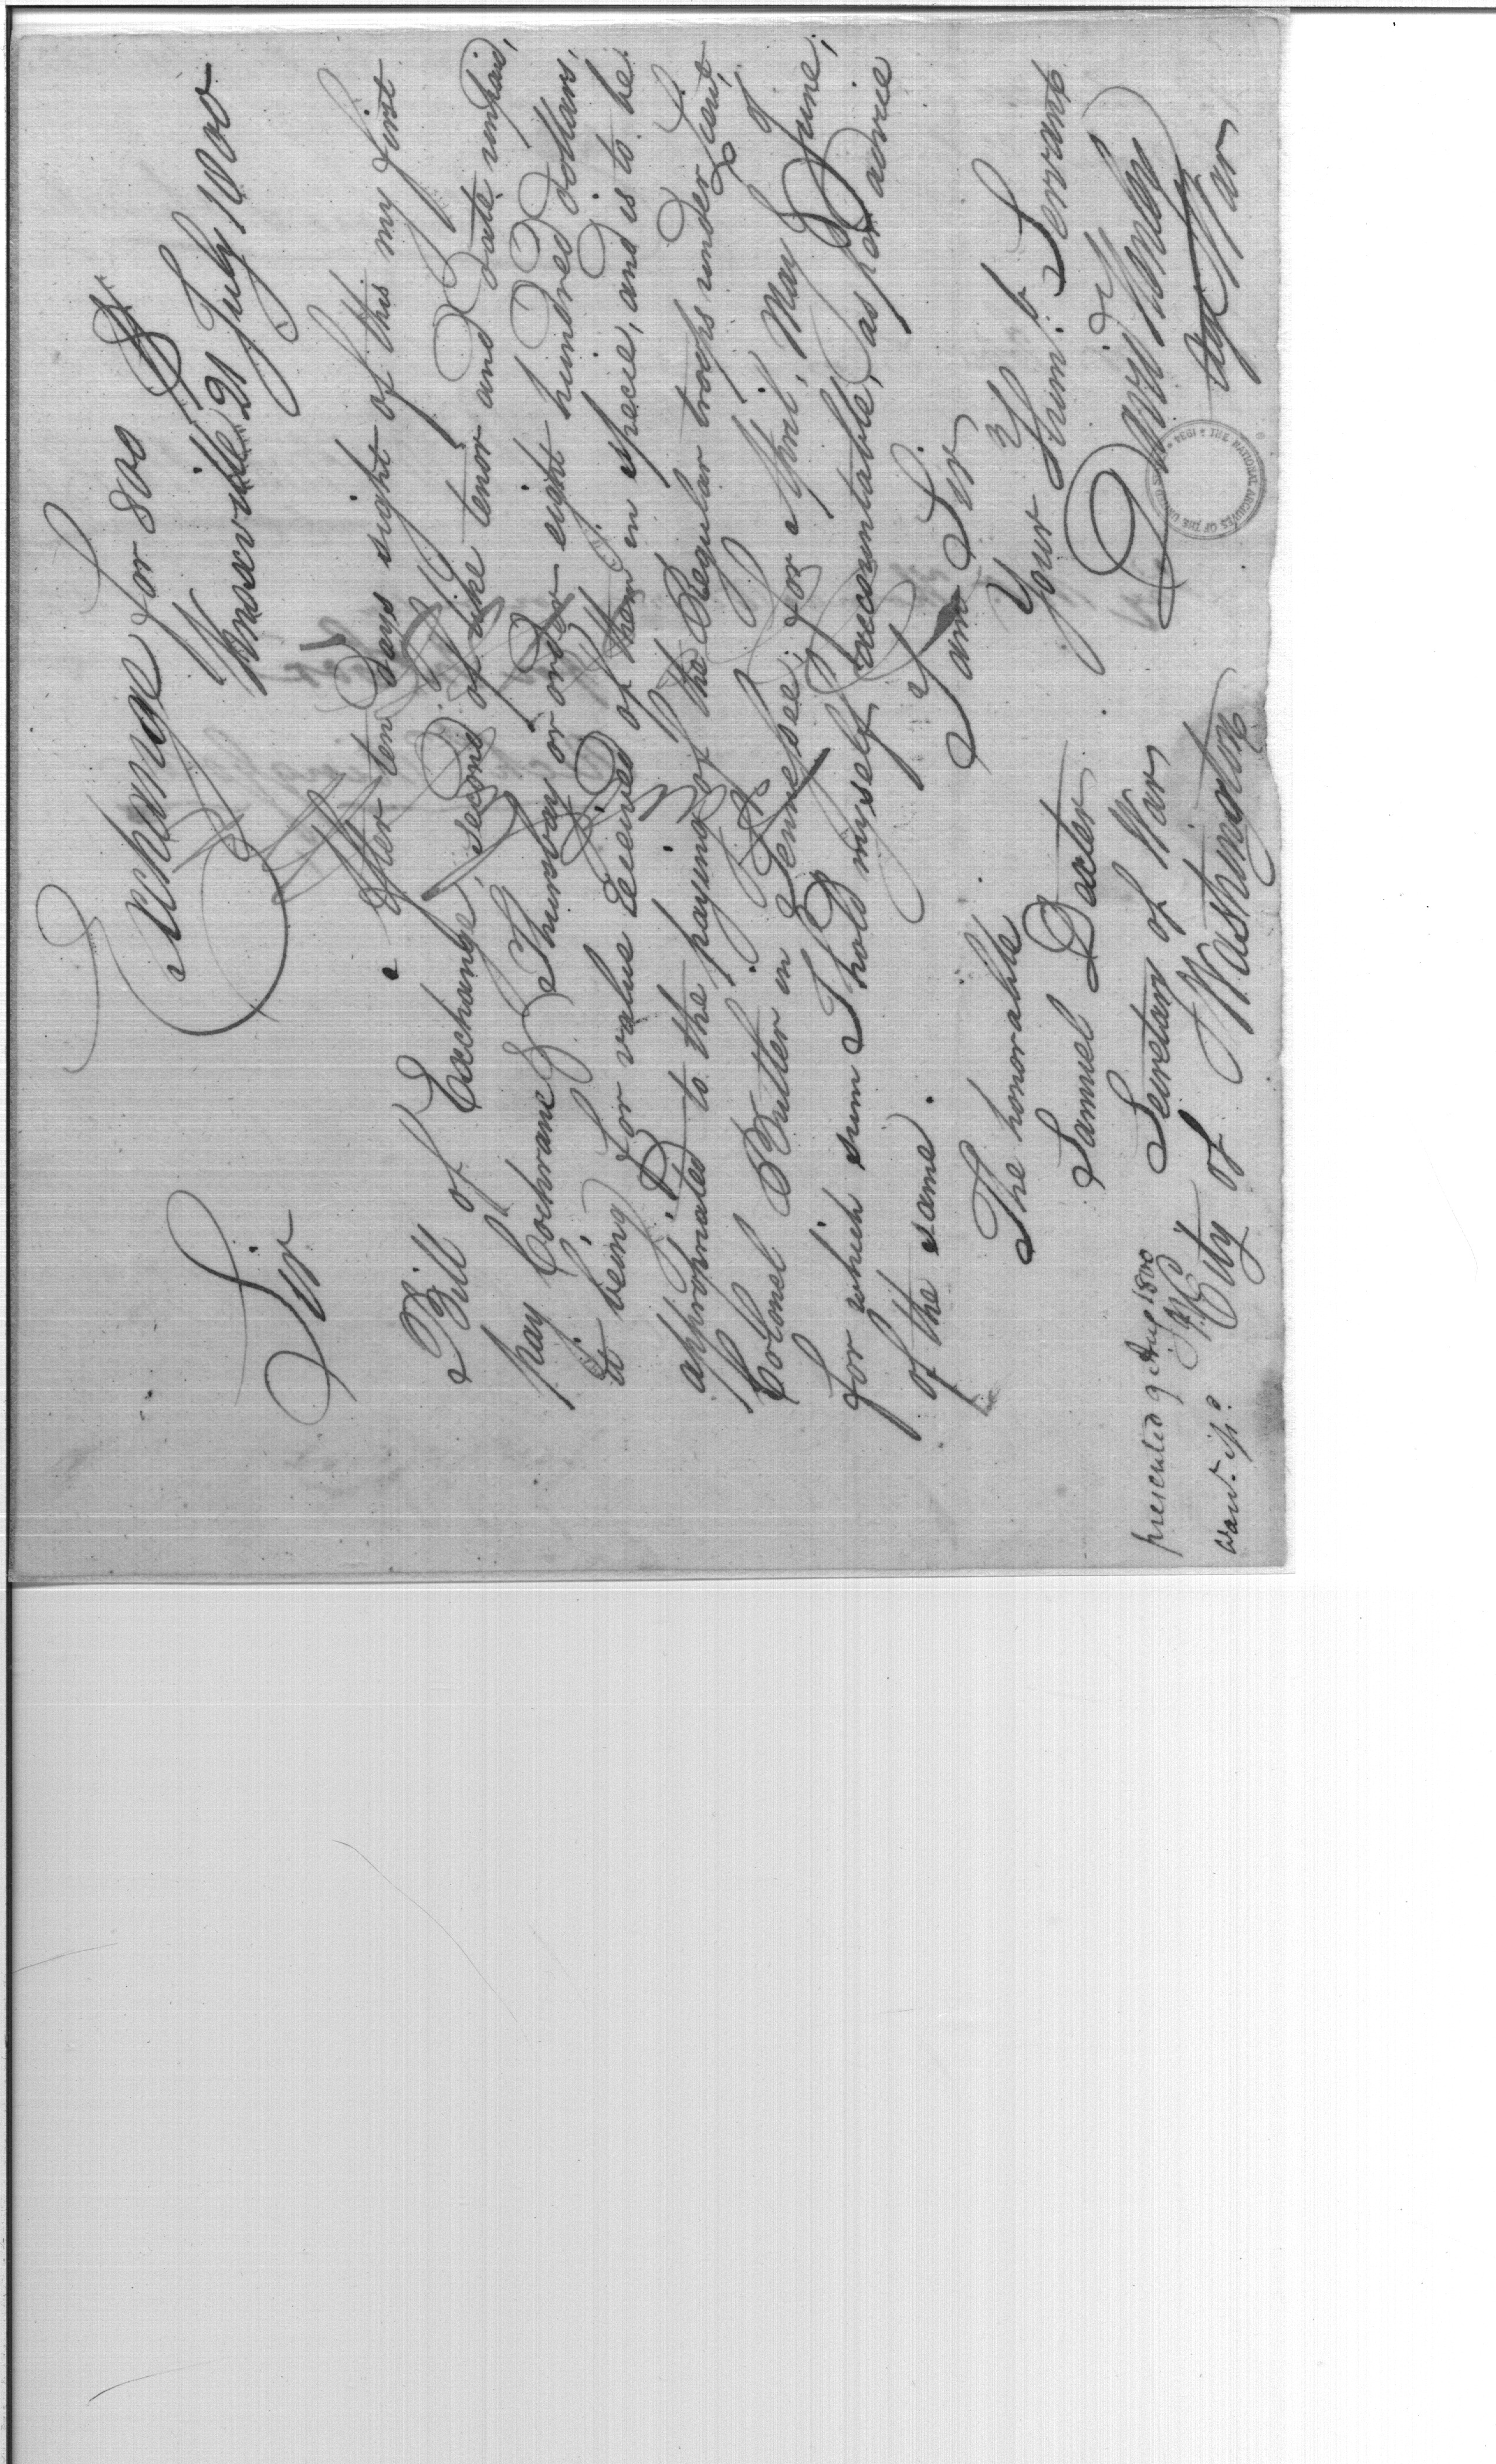 Exchange for 800 D.s
Knoxville 21 July 1800
Sir
After ten days sight of this my first
Bill of Exchange, second of like tenor and date unpaid,
pay Cochrane & Thursby or order eight hundred dollars,
it being for value received of them in specie, and is to be
appropriated to the paying of the Regular troops under Lieut.
Colonel Butler in Tennessee, for April, May & June,
for which sum I hold myself accountable, as per advice
of the same.
I am Sir
Your Hum.b Servant
David Henley
agt War
The honorable
Samuel Dexter
Secretary of War
City of Washington
presented 9 Aug 1800
THE NATIONAL ARCHIVES OF THE UNITED STATES * 1934 *